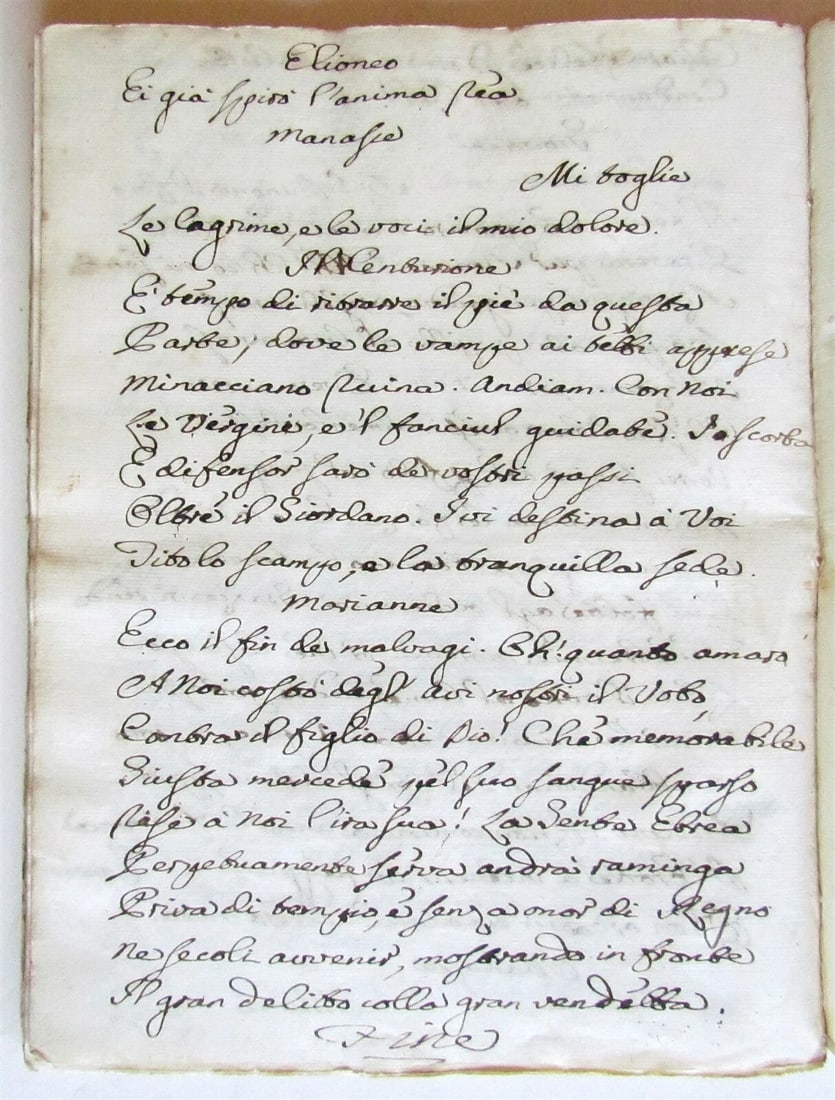 Elioneo
Ei già spirò l'anima rea
Manasse
Mi toglie
Le lagrime, e le voci il mio dolore.
Il Centurione
È tempo di ritrarre il piè da questa
Parte, dove le vampe ai tetti apprese
Minacciano ruina. Andiam. Con Noi
Le Vergini, e 'l fanciul guidate. Io scorta
E difensor sarò de vostri passi
Oltre il Giordano. Ivi destina à Voi
Tito lo scampo, e la tranquilla sede.
Marianne
Ecco il fin de malvagi. Oh! quanto amaro
A Noi costò degl' avi nostri il Voto,
Contro il figlio di Dio! Che memorabile
Giusta mercede pel suo sangue sparso
Rese à Noi l'ira sua! La Gente Ebrea
Perpetuamente serva andrà raminga
Priva di tempio, e senza onor di Regno
Ne secoli avvenir, mostrando in fronte
Il gran delitto colla gran vendetta.
Fine